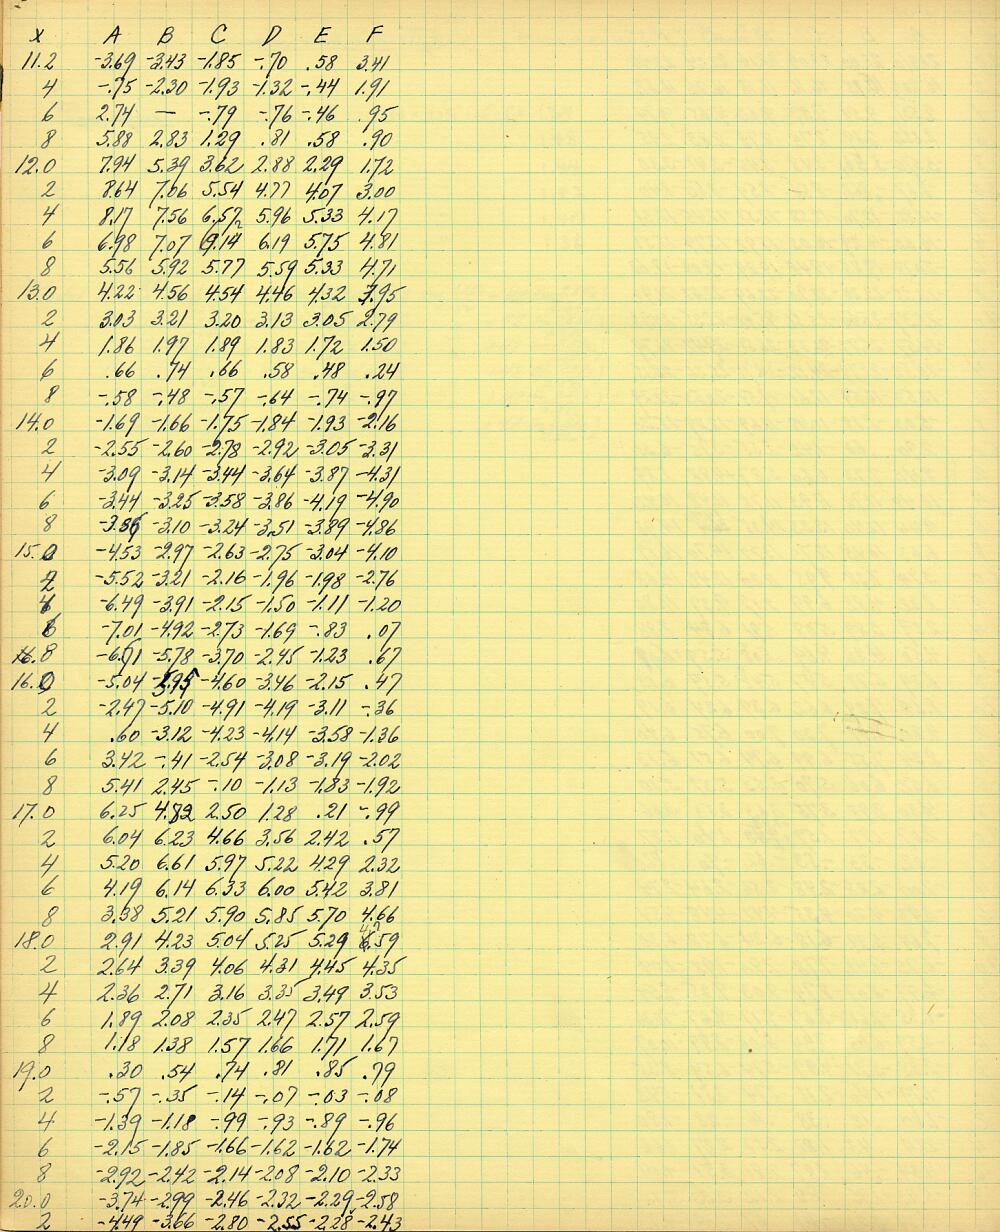 x A B C D E F
11.2 -3.69 -3.43 -1.85 -.70 .58 3.41
4 -.75 -2.30 -1.93 -1.32 -.44 1.91
6 2.74 — -.79 -.76 -.46 .95
8 5.88 2.83 1.29 .81 .58 .90
12.0 7.94 5.39 3.62 2.88 2.29 1.72
2 8.64 7.06 5.54 4.77 4.07 3.00
4 8.17 7.56 6.57 5.96 5.33 4.17
6 6.98 7.07 6.14 6.19 5.75 4.81
8 5.56 5.92 5.77 5.59 5.33 4.71
13.0 4.22 4.56 4.54 4.46 4.32 3.95
2 3.03 3.21 3.20 3.13 3.05 2.79
4 1.86 1.97 1.89 1.83 1.72 1.50
6 .66 .74 .66 .58 .48 .24
8 -.58 -.48 -.57 -.64 -.74 -.97
14.0 -1.69 -1.66 -1.75 -1.84 -1.93 -2.16
2 -2.55 -2.60 -2.78 -2.92 -3.05 -3.31
4 -3.09 -3.14 -3.44 -3.64 -3.87 -4.31
6 -3.44 -3.25 -3.58 -3.86 -4.19 -4.90
8 -3.10 -3.24 -3.51 -3.89 -4.86
15.0 -4.53 -2.97 -2.63 -2.75 -3.04 -4.10
2 -5.52 -3.21 -2.16 -1.96 -1.98 -2.76
4 -6.49 -3.91 -2.15 -1.50 -1.11 -1.20
6 -7.01 -4.92 -2.73 -1.69 -.83 .07
8 -6.71 -5.78 -3.70 -2.45 -1.23 .67
16.0 -5.04 -5.95 -4.60 -3.46 -2.15 .47
2 -2.47 -5.10 -4.91 -4.19 -3.11 -.36
4 .60 -3.12 -4.23 -4.14 -3.58 -1.36
6 3.42 -.41 -2.54 -3.08 -3.19 -2.02
8 5.41 2.45 -.10 -1.13 -1.83 -1.92
17.0 6.25 4.82 2.50 1.28 .21 -.99
2 6.04 6.23 4.66 3.56 2.42 .57
4 5.20 6.61 5.97 5.22 4.29 2.32
6 4.19 6.14 6.33 6.00 5.42 3.81
8 3.38 5.21 5.90 5.85 5.70 4.66
18.0 2.91 4.23 5.04 5.25 5.29
2 2.64 3.39 4.06 4.31 4.45 4.35
4 2.36 2.71 3.16 3.35 3.49 3.53
6 1.89 2.08 2.35 2.47 2.57 2.59
8 1.18 1.38 1.57 1.66 1.71 1.67
19.0 .30 .54 .74 .81 .85 .79
2 -.57 -.35 -.14 -.07 -.03 -.08
4 -1.39 -1.18 -.99 -.93 -.89 -.96
6 -2.15 -1.85 -1.66 -1.62 -1.62 -1.74
8 -2.92 -2.42 -2.14 -2.08 -2.10 -2.33
20.0 -3.74 -2.99 -2.46 -2.32 -2.29 -2.58
2 -4.49 -3.66 -2.80 -2.55 -2.28 -2.43